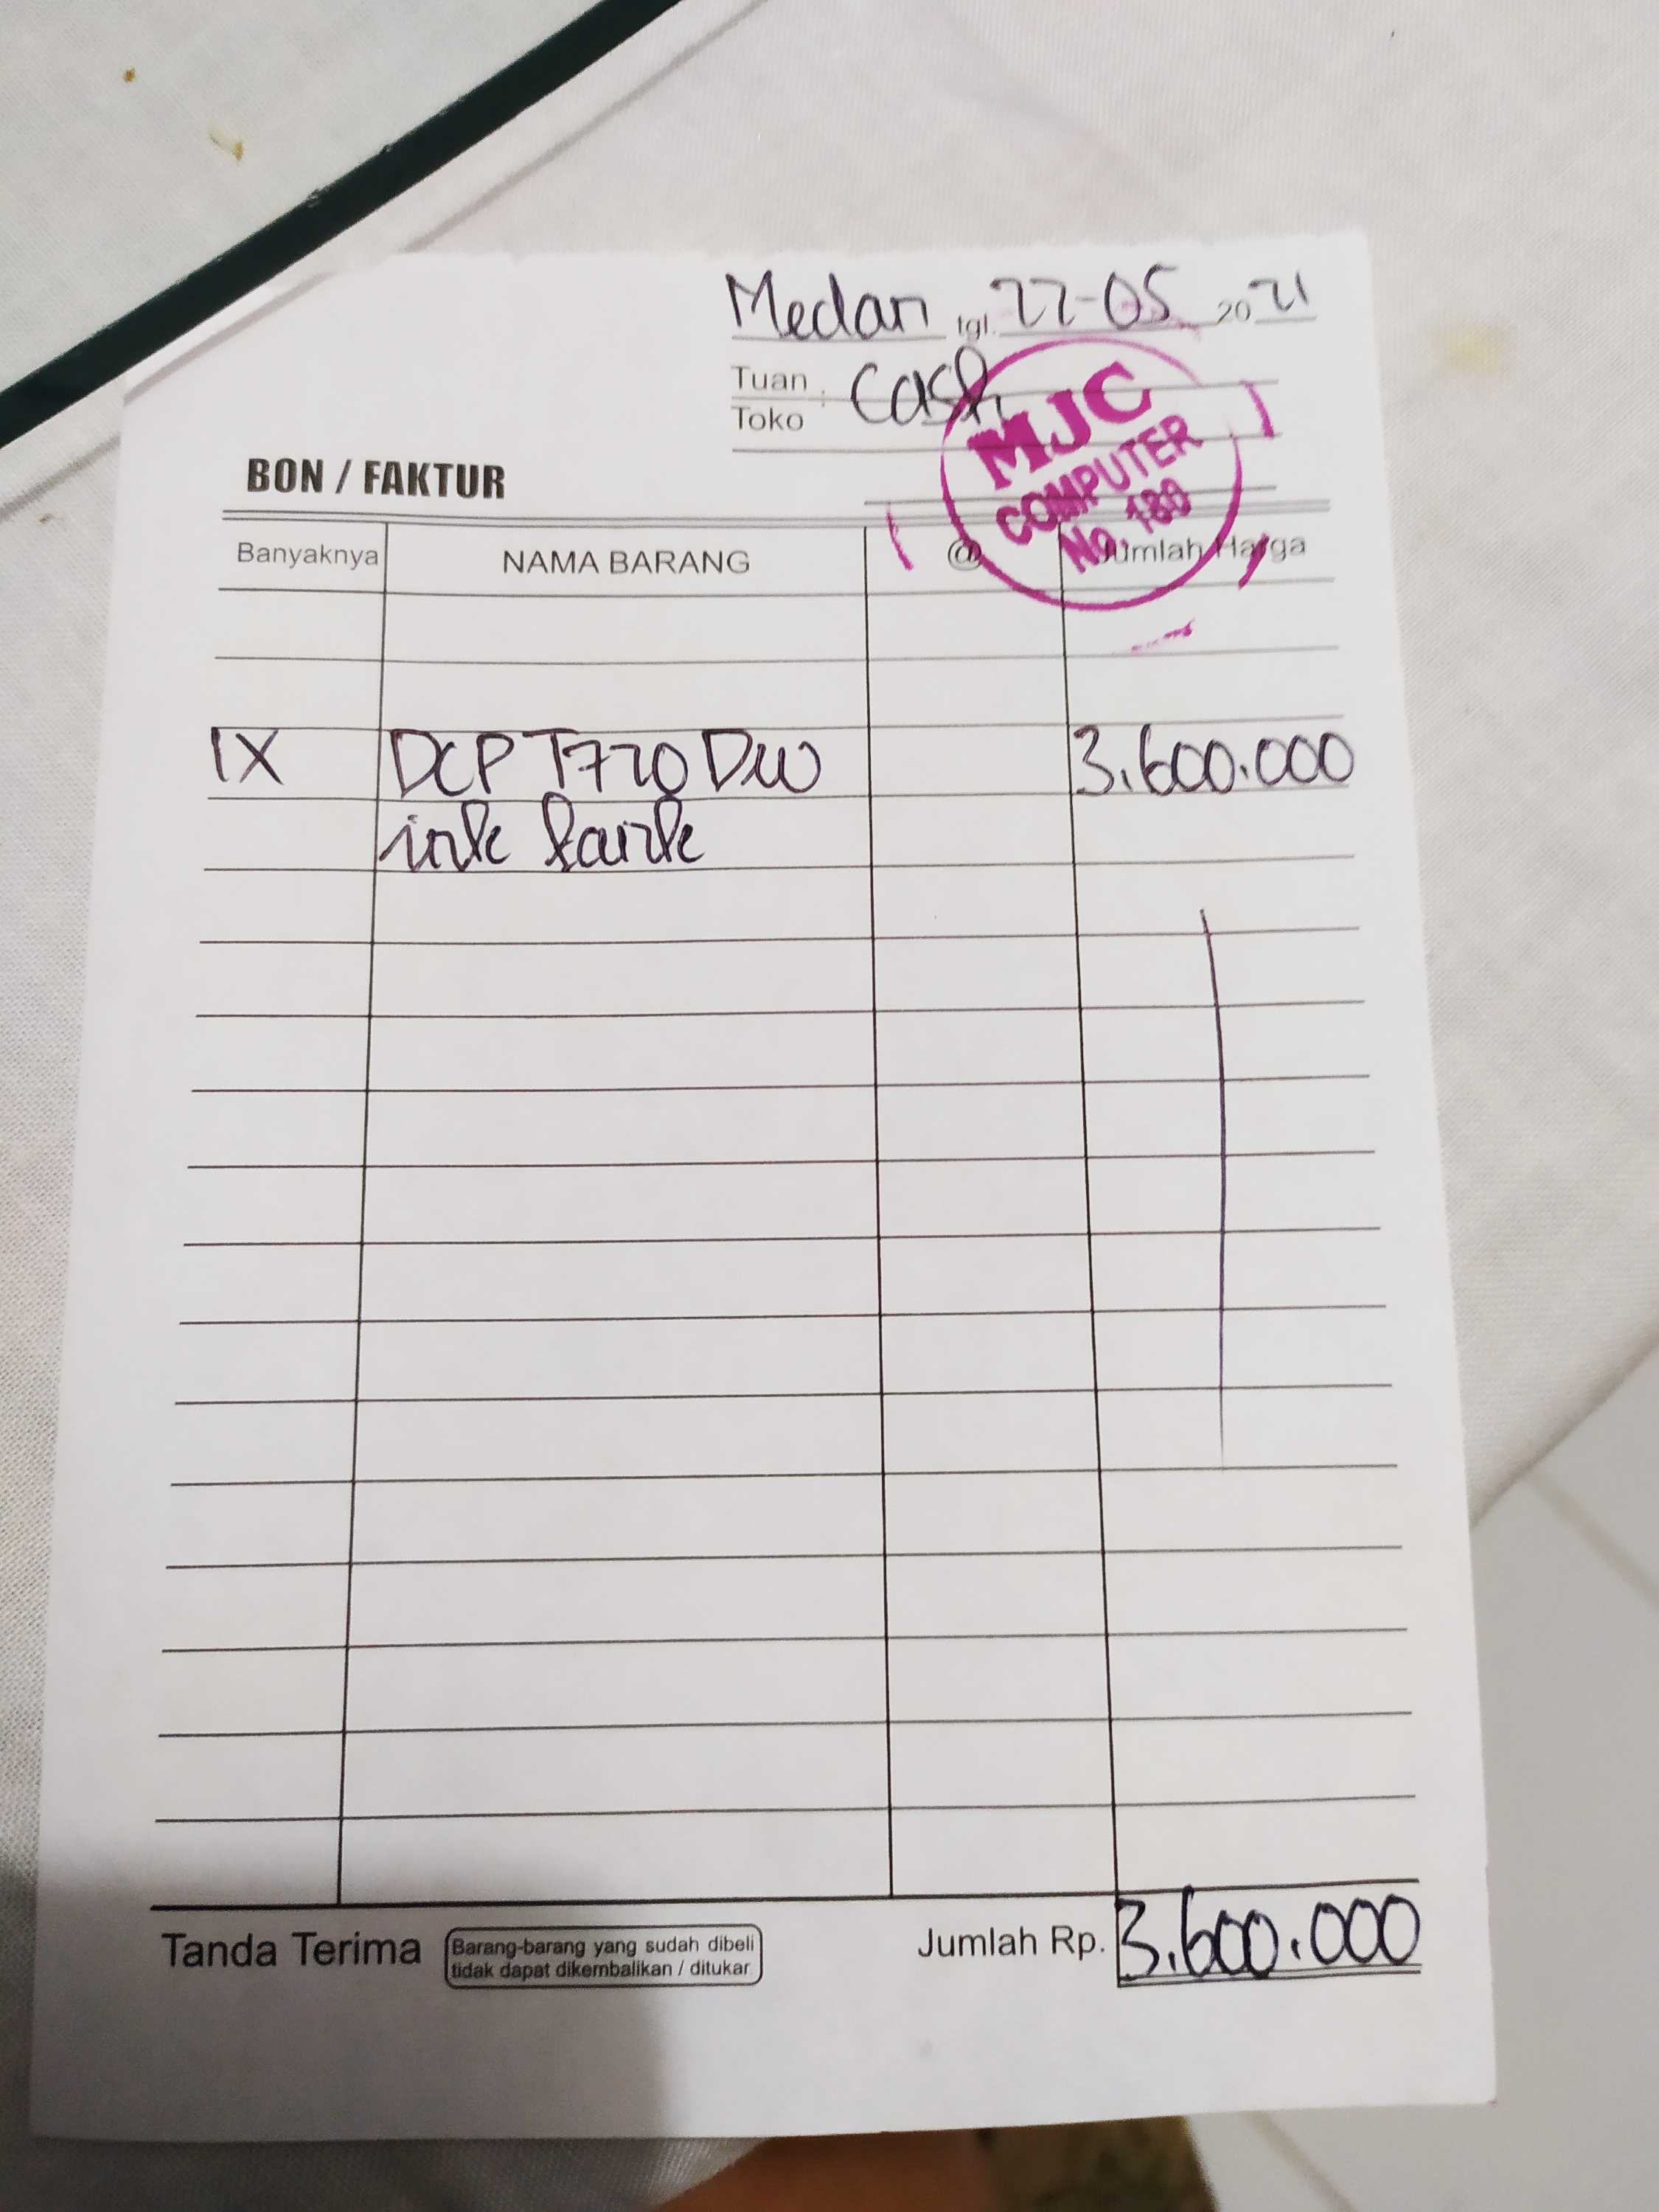 Medan tgl. 22-05 2021
Tuan
Toko : Cash
MJC
COMPUTER
No. 180
BON / FAKTUR
Banyaknya NAMA BARANG @ Jumlah Harga
1X DCP T720 DW 3.600.000
ink tank
Tanda Terima
Barang-barang yang sudah dibeli
tidak dapat dikembalikan / ditukar
Jumlah Rp. 3.600.000